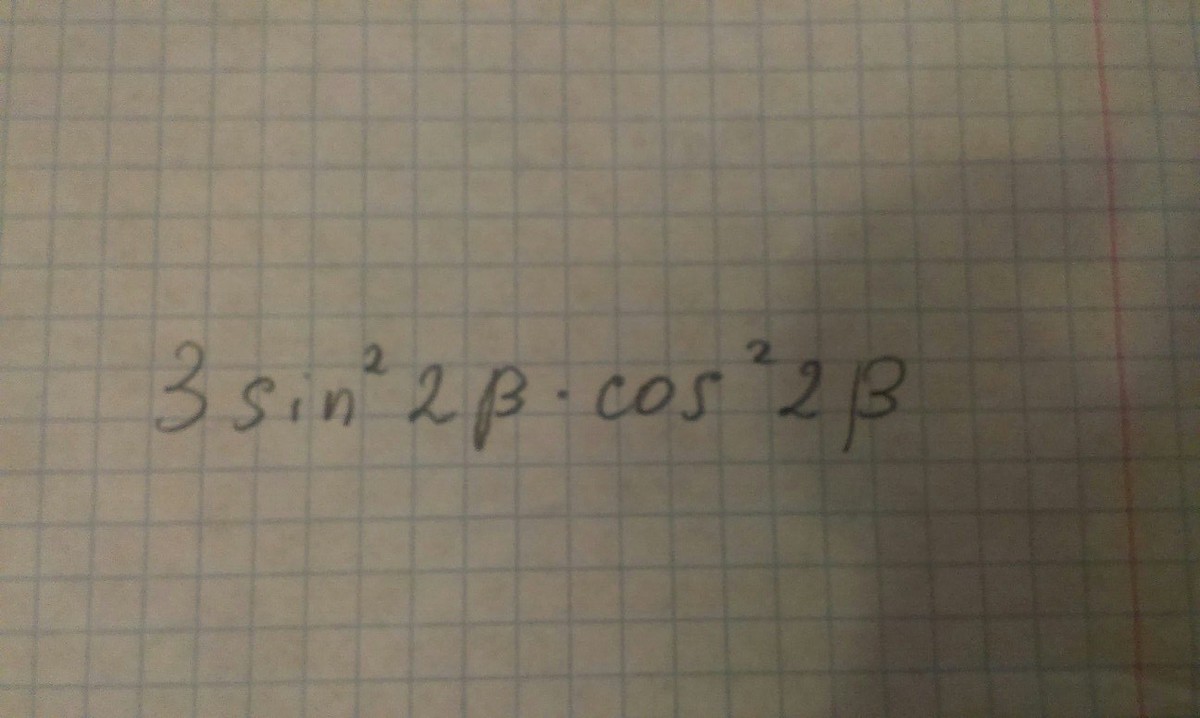 3 sin² 2β · cos² 2β